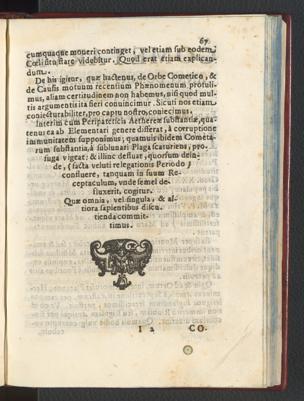 67
cumquaque moneri continget, vel etiam sub eodem
Cœli situ stare videbitur. Quod erat etiam explican-
dum.
De his igitur, quæ hactenus, de Orbe Cometico, &
de Causis motuum recentium Phænomenum protuli-
mus, aliam certitudinem non habemus, nisi quod mul-
tis argumentis ita fieri convincimur. Sicuti nos etiam
coniecturabiliter, pro captu nostro, coniecimus.
Interim cum Peripateticis Aetheream substantiæ, qua-
tenus ea ab Elementari genere differat, à corruptione
immunitatem supponimus; quamuis ibidem Cometa-
rum substantia, à sublunari Plaga scaturiens, pro-
fuga vigeat; & illinc defluat, quorsum dein-
de, (facta veluti relegationis Periodo)
confluere, tanquam in suum Re-
ceptaculum, unde semel de-
fluxerit, cogitur.
Quæ omnia, vel singula, & al-
tiora sapientibus discu-
tienda commit-
timus.
I 2
CO.